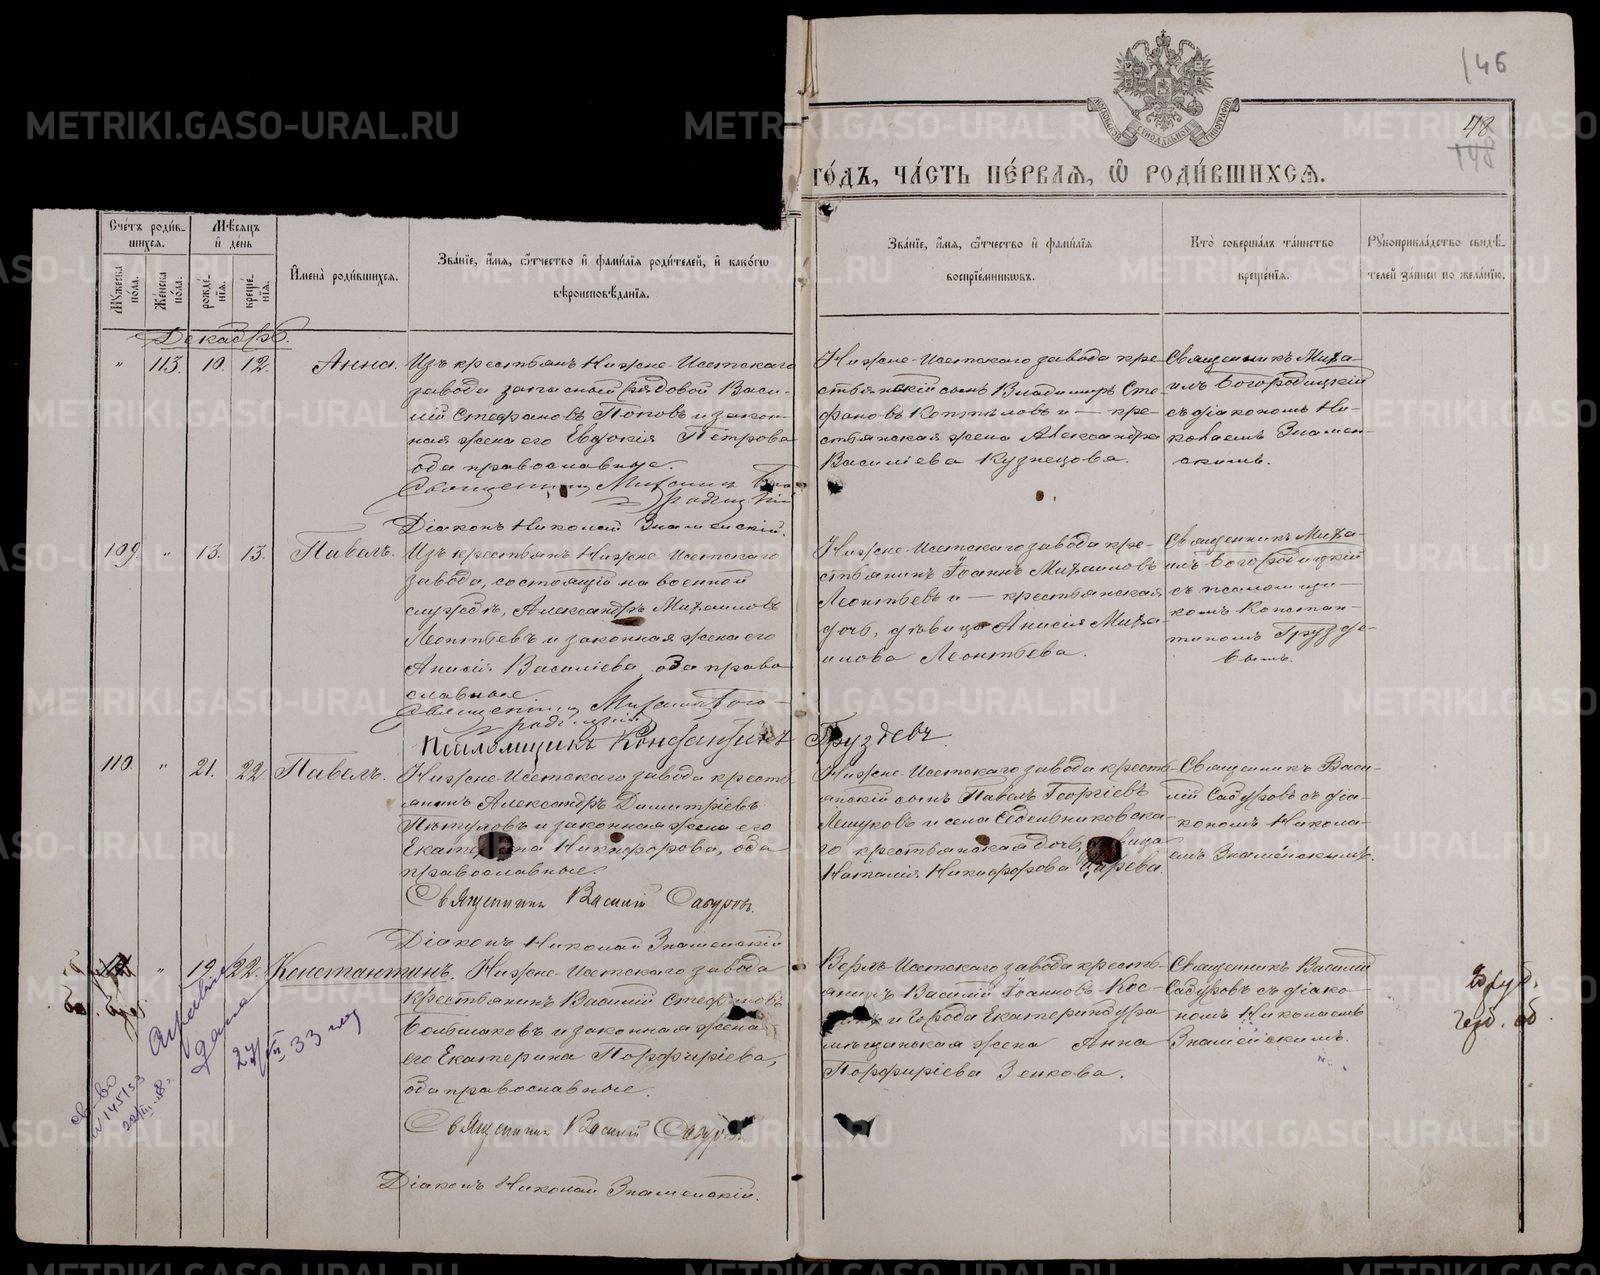 146
48
148
МОСКОВСКОЙ СѴНОДАЛЬНОЙ ТИПОГРАФІИ
ГО́ДЪ, ЧА́СТЬ ПЕ́РВАЯ, Ѡ҆ РОДИ́ВШИХСЯ.
Сче́тъ роди́в-
шихся.
Мѣ́сяцъ
и҆ де́нь
Мꙋ́жеска
по́ла.
Же́нска
по́ла.
рожде́-
нїя.
креще́-
нїя.
И҆мена̀ роди́вшихся.
Зва́нїе, и҆́мя, ѻ҆́тчество и҆ фами́лїя роди́телей, и҆ како́гѡ
вѣроисповѣ́данїя.
Зва́нїе, и҆́мя, ѻ҆́тчество и҆ фами́лїя
воспрїе́мниковъ.
Кто̀ соверша́лъ та́инство
креще́нїя.
Рꙋкоприкла́дство свидѣ́-
телей за́писи по жела́нїю.
Декабрь.
„ 113. 10. 12. Анна.
Изъ крестьянъ Нижне-Исетскаго
завода запасный рядовой Васи-
лій Стефановъ Поповъ и закон-
ная жена его Евдокія Петрова
оба православные.
Священникъ Михаилъ Бого-
родицкій
Діаконъ Николай Знаменскій.
Нижне-Исетскаго завода кре-
стьянскій сынъ Владимиръ Сте-
фановъ Котѣловъ и — кре-
стьянская жена Александра
Васильева Кузнецова.
Священникъ Миха-
илъ Богородицкій
съ діакономъ Ни-
колаемъ Знамен-
скимъ.
109. „ 13. 13. Павелъ.
Изъ крестьянъ Нижне-Исетскаго
завода, состоящій на военной
службѣ, Александръ Михаиловъ
Леонтьевъ и законная жена его
Анисія Василіева оба право-
славные.
Священникъ Михаилъ Бого-
родицкій
Псаломщикъ Константинъ Груздевъ.
Нижне-Исетскаго завода кре-
стьянинъ Іоаннъ Михаиловъ
Леонтьевъ и — крестьянская
дочь, дѣвица Анисія Миха-
илова Леонтьева.
Священникъ Миха-
илъ Богородицкій
съ псаломщи-
комъ Констан-
тиномъ Груздe-
вымъ.
110. „ 21. 22. Павелъ.
Нижне-Исетскаго завода кресть-
янинъ Александръ Димитріевъ
Пѣтуловъ и законная жена его
Екатерина Никифорова, оба
православные.
Священникъ Василій Сабуровъ.
Діаконъ Николай Знаменскій
Нижне-Исетскаго завода кресть-
янскій сынъ Павелъ Георгіевъ
Лешуковъ и села Седельниковска-
го крестьянская дочь, дѣвица
Наталія Никифорова
Священникъ Васи-
лій Сабуровъ съ діа-
кономъ Никола-
емъ Знаменскимъ.
„ 19. 22. Константинъ.
Нижне-Исетскаго завода
крестьянинъ Василій Стефановъ
Большаковъ и законная жена
его Екатерина Порфиріева,
оба православные.
Священникъ Василій Сабуровъ
Діаконъ Николай Знаменскій.
Верхъ-Исетскаго завода кресть-
янинъ Василій Іоанновъ Кос-
и города Екатеринбурга
мѣщанская жена Анна
Порфиріева Зенкова.
Священникъ Василій
Сабуровъ съ діако-
номъ Николаемъ
Знаменскимъ.
Справка
дана
27/II 33 год
св-во
METRIKI.GASO-URAL.RU